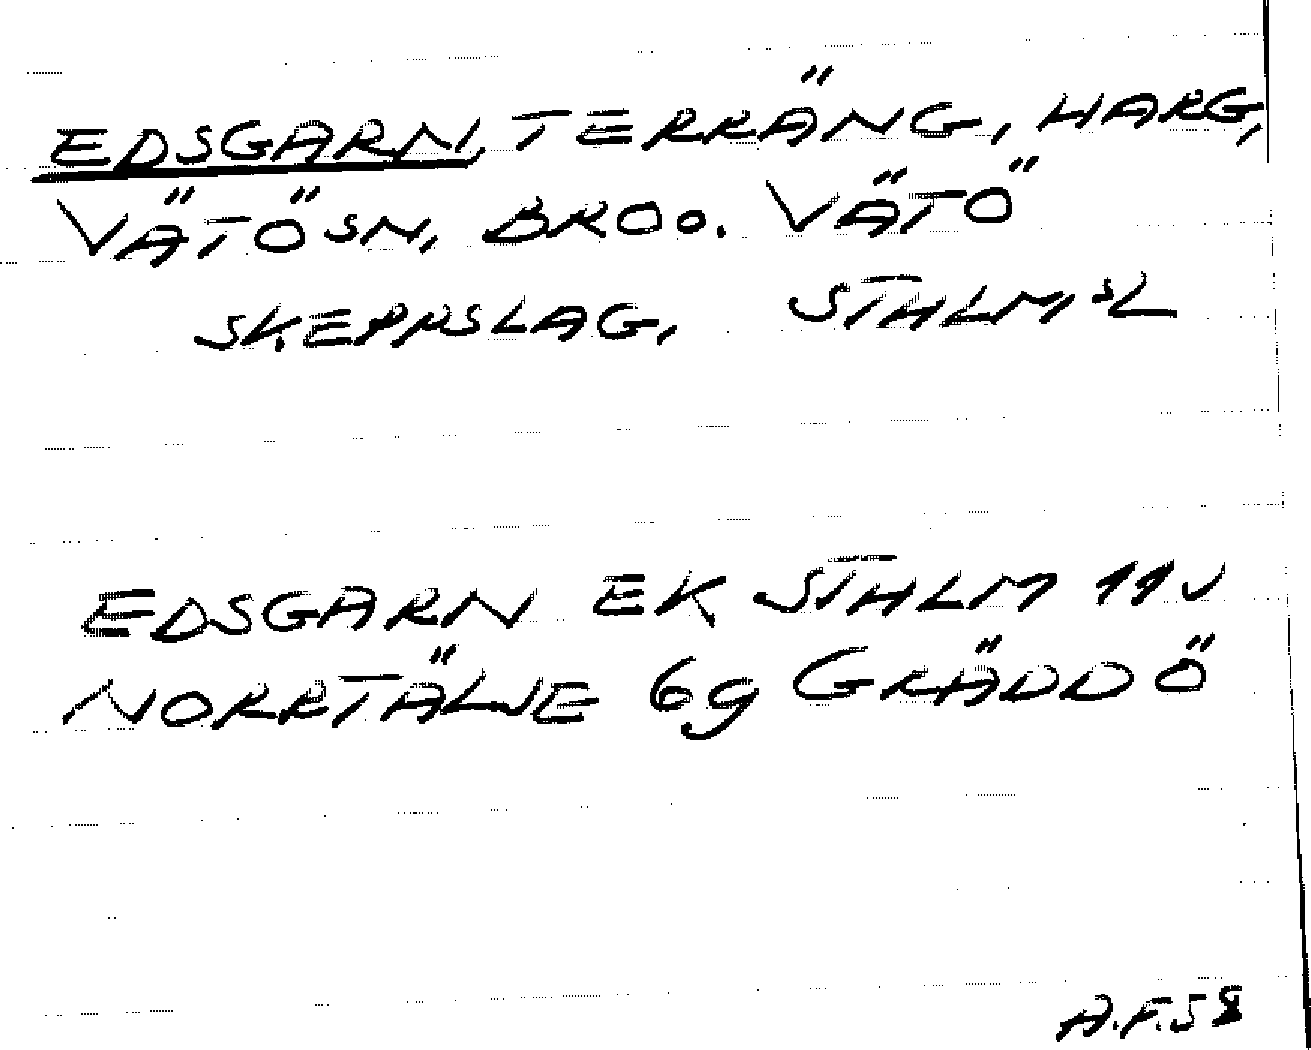 EDSGARN, TERRÄNG, HARG,
VÄTÖ SN, BRO O. VÄTÖ
SKEPPSLAG, STHLMSL
EDSGARN EK STHLM 11V
NORRTÄLJE 6g GRÄDDÖ
A.F.58